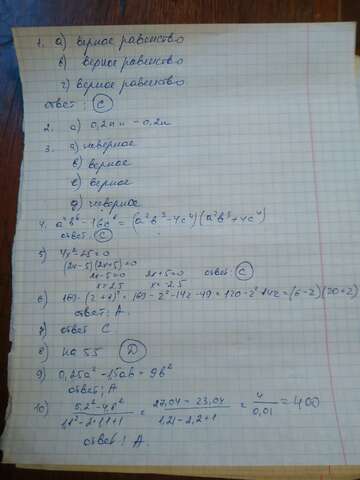 1. а) верное равенство
в) верное равенство
г) верное равенство
ответ: С
2. а) 0,2а и -0,2а
3. а) неверное
в) верное
с) верное
д) неверное
4. a⁴b⁶ - 16c⁸ = (a²b³ - 4c⁴)(a²b³ + 4c⁴)
ответ: С
5) 4x² - 25 = 0
(2x-5)(2x+5)=0
2x-5=0 2x+5=0 ответ С
x=2,5 x=-2,5
6) 169 - (z+7)² = 169 - z² - 14z - 49 = 120 - z² - 14z = (6-z)(20+z)
ответ: А.
7) ответ С
8) на 55 D
9) 0,25a² - 15ab + 9b²
ответ: А
10) 5,2² - 4,8² / 1,1² - 2·1,1+1 = 27,04 - 23,04 / 1,21 - 2,2+1 = 4 / 0,01 = 400
ответ: А.